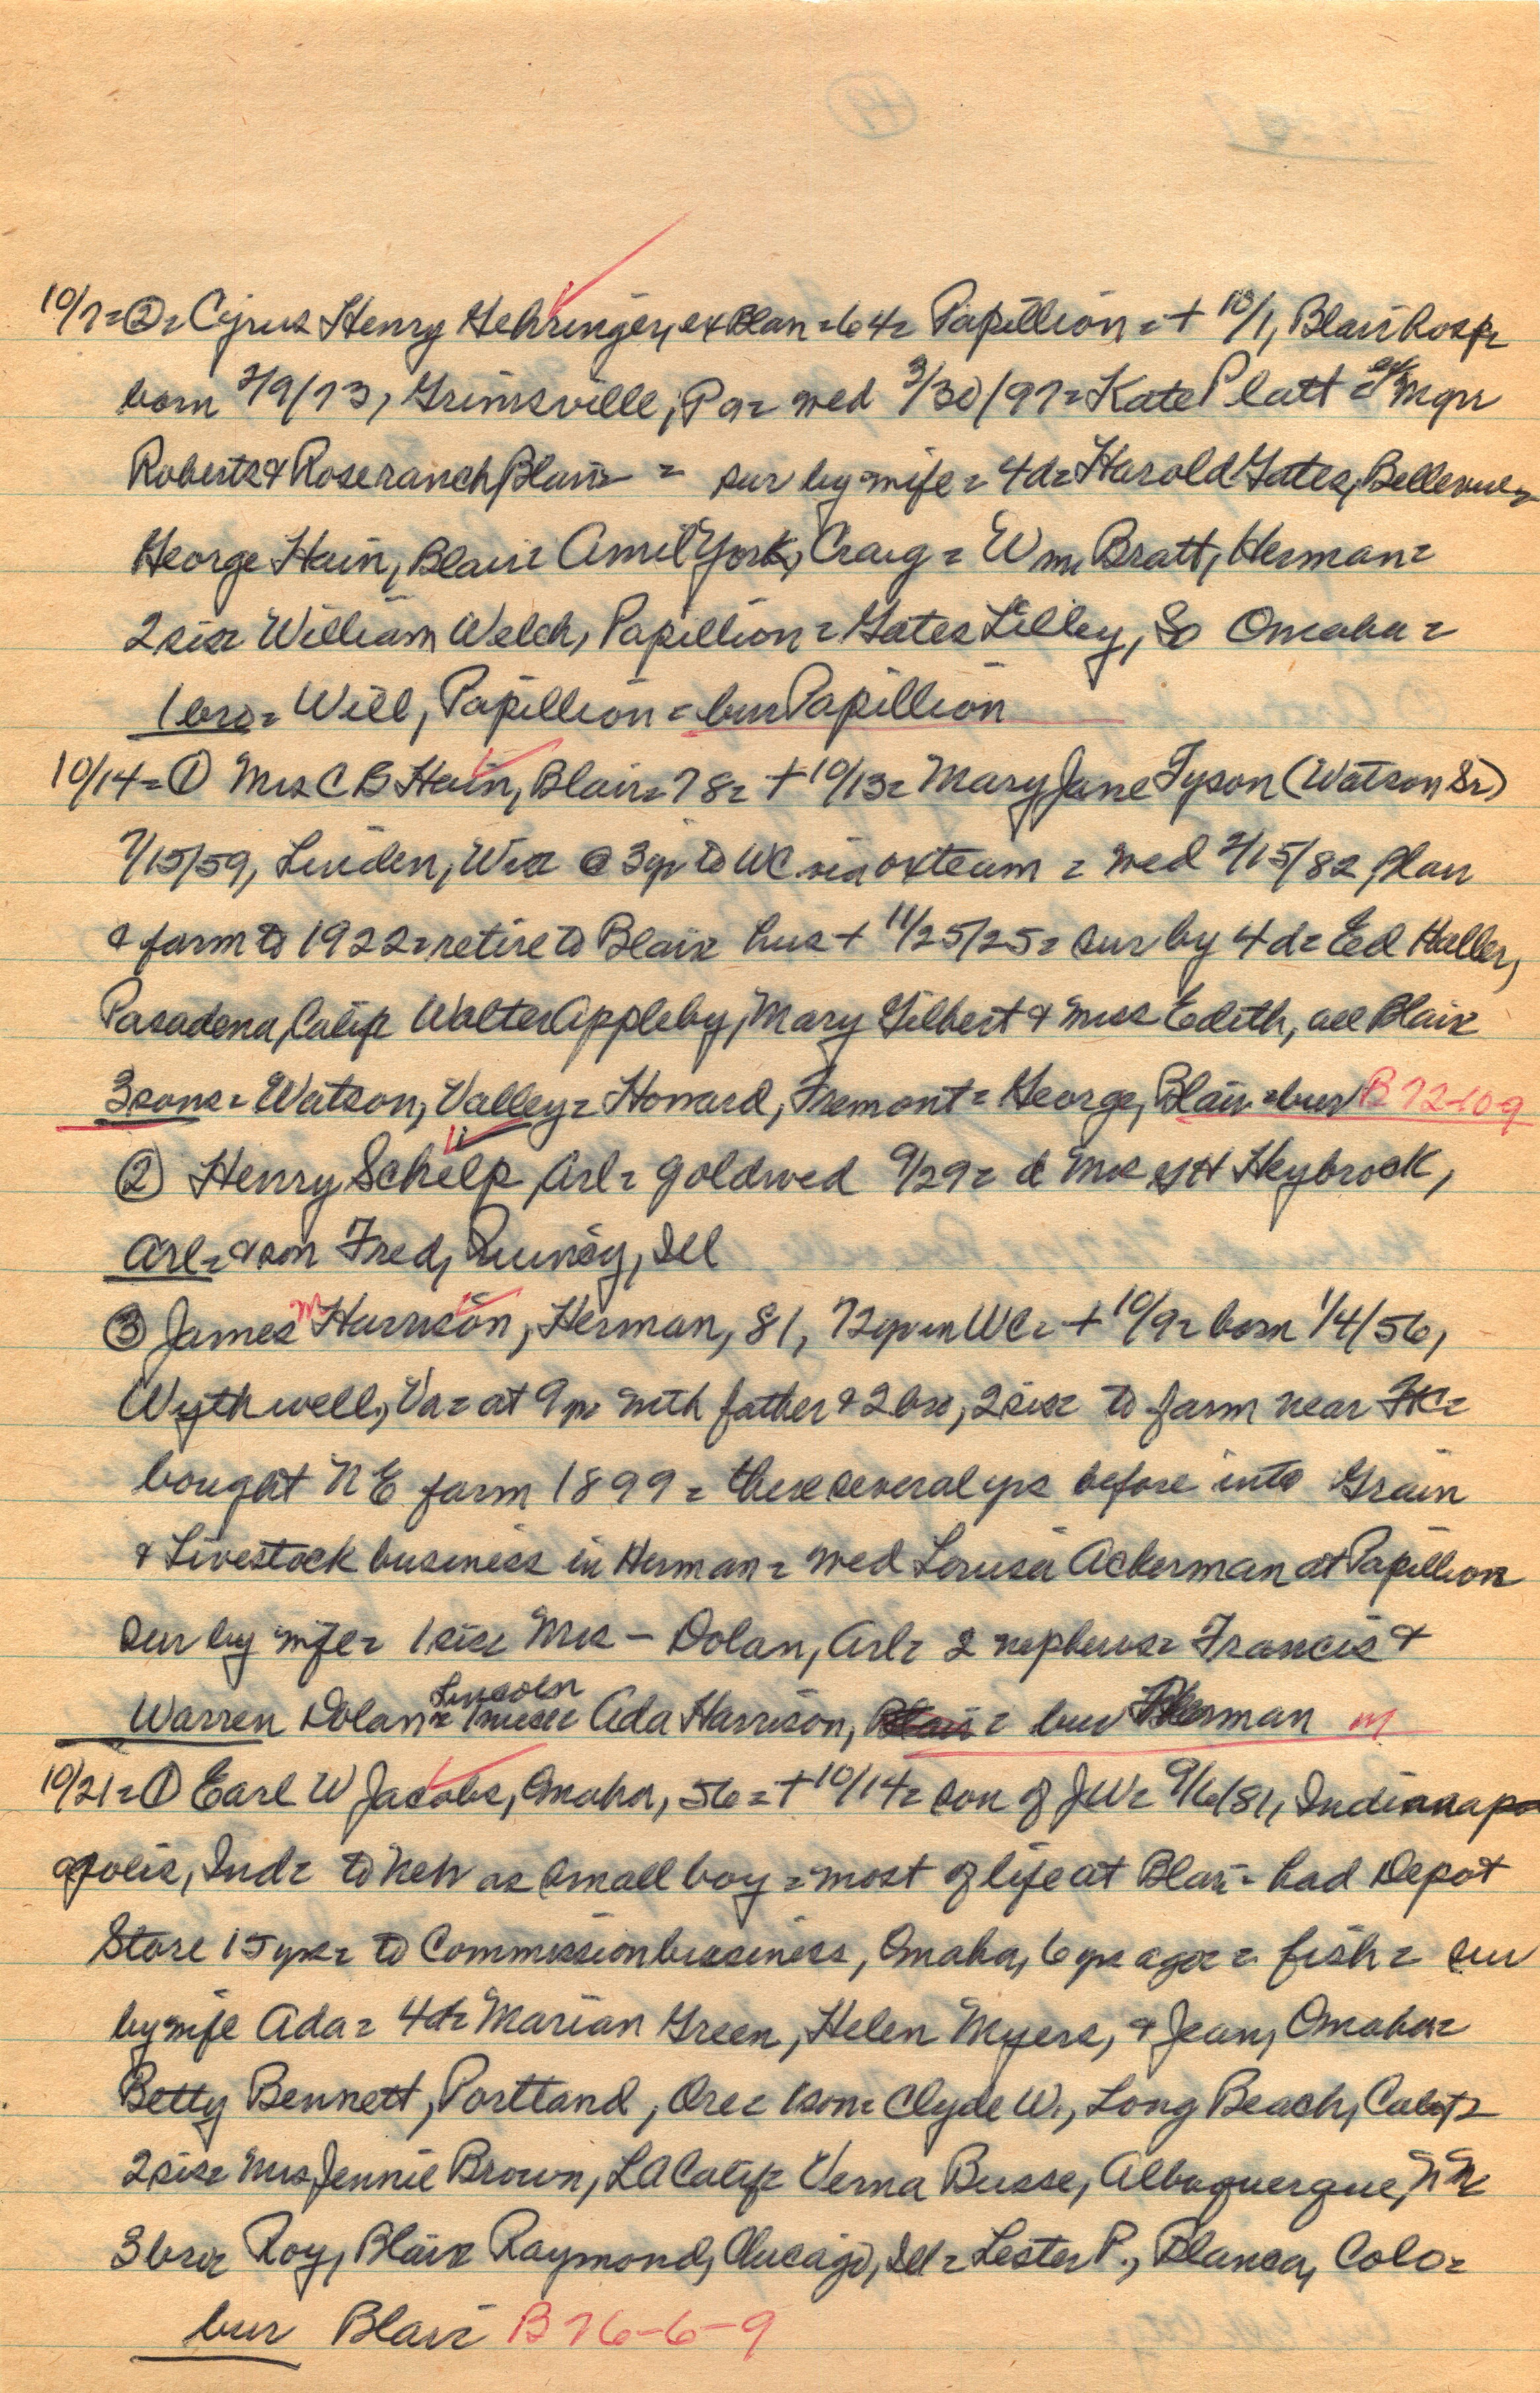 10/7=②= Cyrus Henry Gehringer, ex Blair=64= Papillion=+ 10/1, Blair hosp=
born 2/9/73, Grimsville, Pa= wed 3/30/97= Kate Platt = ex mgr
Roberts & Rose ranch, Blair = sur by wife= 4d= Harold Gates, Bellevue=
George Hain, Blair= Amil York, Craig = Wm. Bratt, Herman=
2 sis= William Welch, Papillion = Gates Lilley, So Omaha =
1 bro= Will, Papillion = bur Papillion
10/14=① Mrs C B Hain, Blair=78= + 10/13= Mary Jane Tyson (Watson Sr)
7/15/59, Linden, Wis= @ 3yr to WC via oxteam = wed 2/15/82, Blair
& farm to 1922= retire to Blair= hus + 11/25/25= sur by 4d= Ed Haller,
Pasadena, Calif= Walter Appleby, Mary Gilbert & Miss Edith, all Blair=
3 sons= Watson, Valley= Howard, Fremont= George, Blair =bur B 72-10-9
② Henry Schelp, Arl= gold wed 9/29= d Mrs Heybrock,
Arl= & son Fred, Quincy, Ill
③ James M Harrison, Herman, 81, 72 yr in WC= + 10/9= born 1/4/56,
Wythwell, Va= at 9 yr with father & 2 bro, 2 sis= to farm near FtC=
bought NE farm 1899 = there several yrs before into Grain
& Livestock business in Herman = wed Lousia Ackerman at Papillion
sur by wife= 1 sis= Mrs – Dolan, Arl= 2 nephews= Francis &
Warren Dolan= 1 niece= Ada Harrison, Lincoln Blair = bur Herman M
10/21=① Earl W Jacobs, Omaha, 56=+10/14= son of JW= 9/6/81, Indianapo
apolis, Ind= to Neb as small boy = most of life at Blair= had Depot
Store 15 yrs= to Commission bussiness, Omaha, 6 yrs ago = fish = sur
by wife Ada= 4d= Marian Green, Helen Myers, & Jean, Omaha=
Betty Bennett, Portland, Ore= 1 son= Clyde W., Long Beach, Calif=
2 sis= Mrs Jennie Brown, LA Calif= Verna Busse, Albuquerque, NM=
3 bro= Roy, Blair= Raymond, Chicago, Ill= Lester P., Blanca, Colo=
bur Blair B 76-6-9